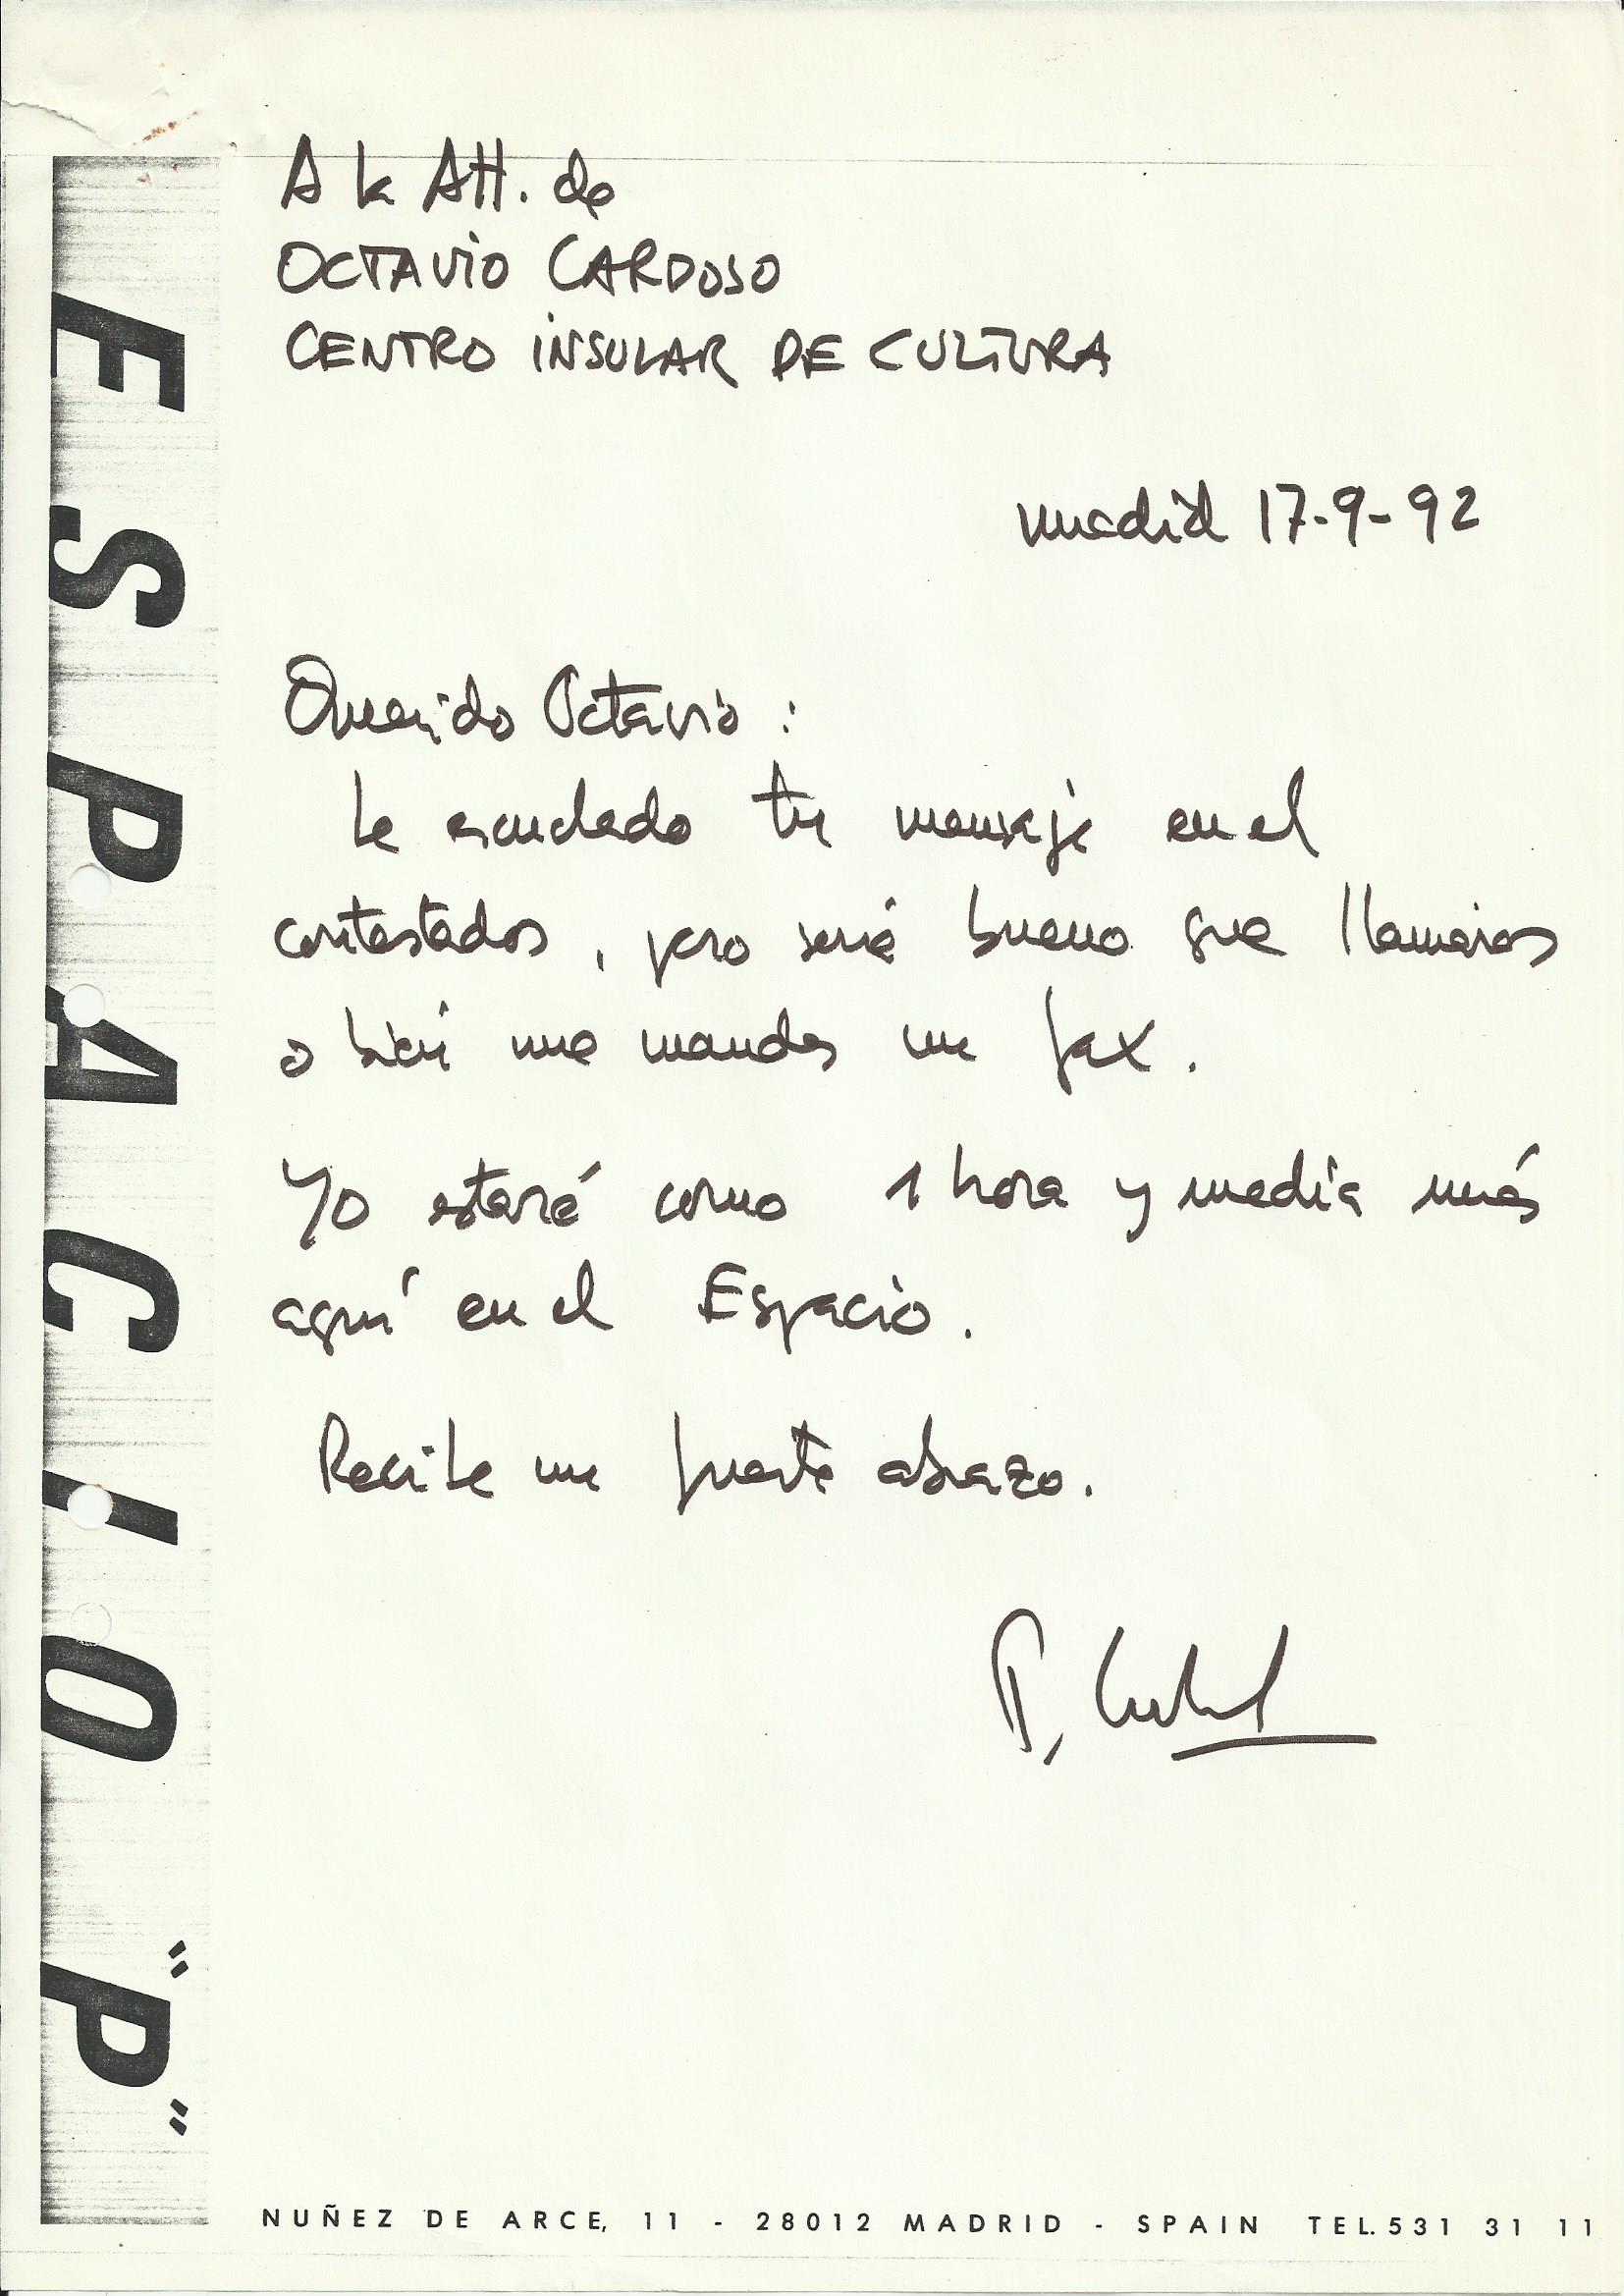 A la Att. de
OCTAVIO CARDOSO
CENTRO INSULAR DE CULTURA
Madrid 17-9-92
Querido Octavio:
he escuchado tu mensaje en el
contestador, pero sería bueno que llamaras
o bien me mandes un fax.
Yo estaré como 1 hora y media más
aquí en el Espacio.
Recibe un fuerte abrazo.
ESPACIO "P"
NUÑEZ DE ARCE, 11 - 28012 MADRID - SPAIN TEL. 531 31 11